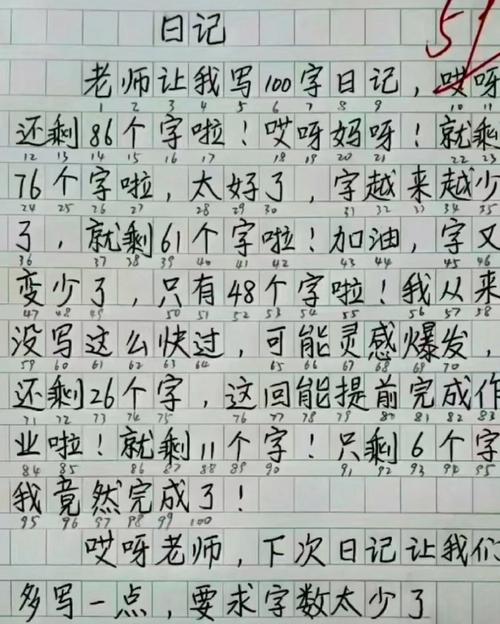 日记
59
老师让我写100字日记，哎呀
1 2 3 4 5 6 7 8 9 10 11
还剩86个字啦！哎呀妈呀！就剩
12 13 14 15 16 17 18 19 20 21 22 23
76个字啦，太好了，字越来越少
24 25 26 27 28 29 30 31 32 33 34 35
了，就剩61个字啦！加油，字又
36 37 38 39 40 41 42 43 44 45 46
变少了，只有48个字啦！我从来
47 48 49 50 51 52 53 54 55 56 57 58
没写这么快过，可能灵感爆发，
59 60 61 62 63 64 65 66 67 68 69 70
还剩26个字，这回能提前完成作
71 72 73 74 75 76 77 78 79 80 81 82 83
业啦！就剩11个字！只剩6个字
84 85 86 87 88 89 90 91 92 93 94 95
我竟然完成了！
95 96 97 98 99 100
哎呀老师，下次日记让我们
多写一点，要求字数太少了